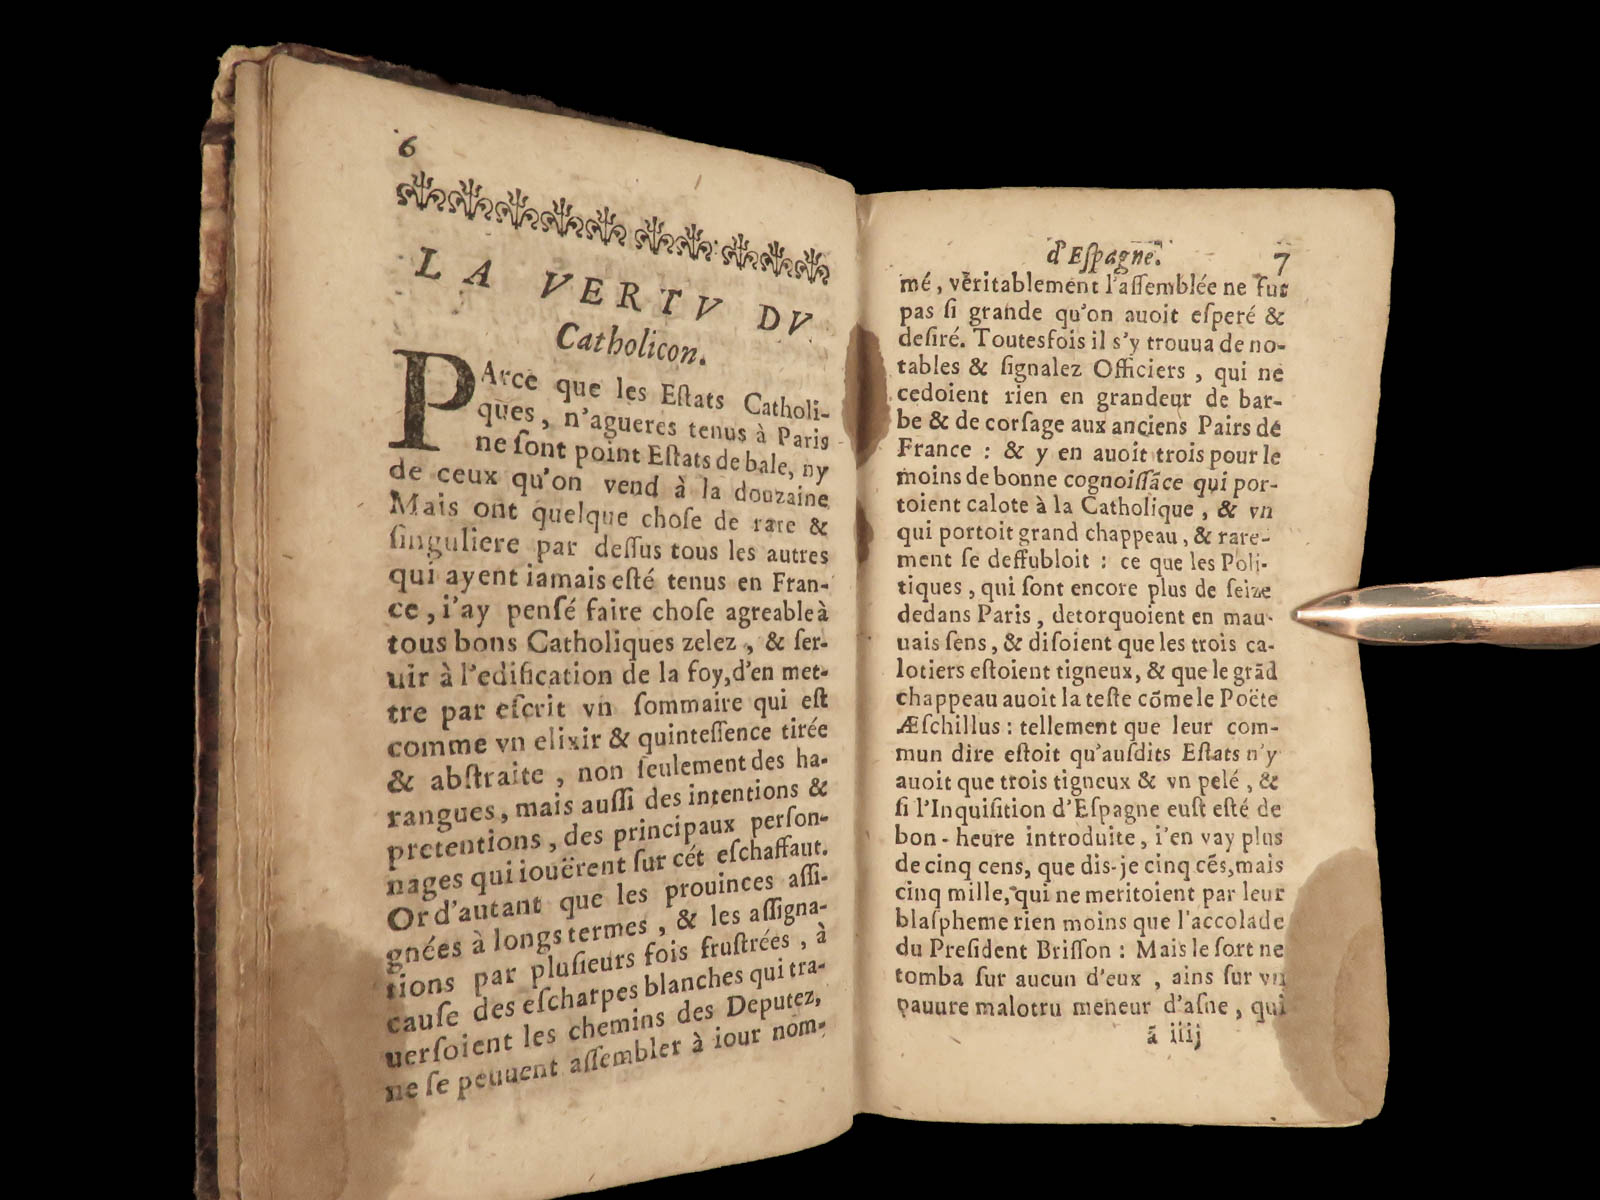 6
LA VERTV DV
Catholicon.
PArce que les Eſtats Catholi-
ques, n'agueres tenus à Paris
ne ſont point Eſtats de bale, ny
de ceux qu'on vend à la douzaine
Mais ont quelque choſe de rare &
ſinguliere par deſſus tous les autres
qui ayent iamais eſté tenus en Fran-
ce, i'ay penſé faire choſe agreable à
tous bons Catholiques zelez, & ſer-
uir à l'edification de la foy, d'en met-
tre par eſcrit vn ſommaire qui eſt
comme vn elixir & quinteſſence tirée
& abſtraite, non ſeulement des ha-
rangues, mais auſſi des intentions &
pretentions, des principaux perſon-
nages qui iouërent ſur cét eſchaffaut.
Or d'autant que les prouinces aſſi-
gnées à longs termes, & les aſſigna-
tions par pluſieurs fois fruſtrées, à
cauſe des eſcharpes blanches qui tra-
uerſoient les chemins des Deputez,
ne ſe peuuent aſſembler à iour nom-
d'Eſpagne. 7
mé, vèritablement l'aſſemblée ne fut
pas ſi grande qu'on auoit eſperé &
deſiré. Toutesfois il s'y trouua de no-
tables & ſignalez Officiers, qui ne
cedoient rien en grandeur de bar-
be & de corſage aux anciens Pairs de
France : & y en auoit trois pour le
moins de bonne cognoiſſãce qui por-
toient calote à la Catholique, & vn
qui portoit grand chappeau, & rare-
ment ſe deffubloit : ce que les Poli-
tiques, qui ſont encore plus de ſeize
dedans Paris, detorquoient en mau-
uais ſens, & diſoient que les trois ca-
lotiers eſtoient tigneux, & que le grãd
chappeau auoit la teſte cõme le Poëte
Æſchillus : tellement que leur com-
mun dire eſtoit qu'auſdits Eſtats n'y
auoit que trois tigneux & vn pelé, &
ſi l'Inquiſition d'Eſpagne euſt eſté de
bon-heure introduite, i'en vay plus
de cinq cens, que dis-je cinq cẽs, mais
cinq mille, qui ne meritoient par leur
blaſpheme rien moins que l'accolade
du Preſident Briſſon : Mais le ſort ne
tomba ſur aucun d'eux, ains ſur vn
pauure malotru meneur d'aſne, qui
ã iiij